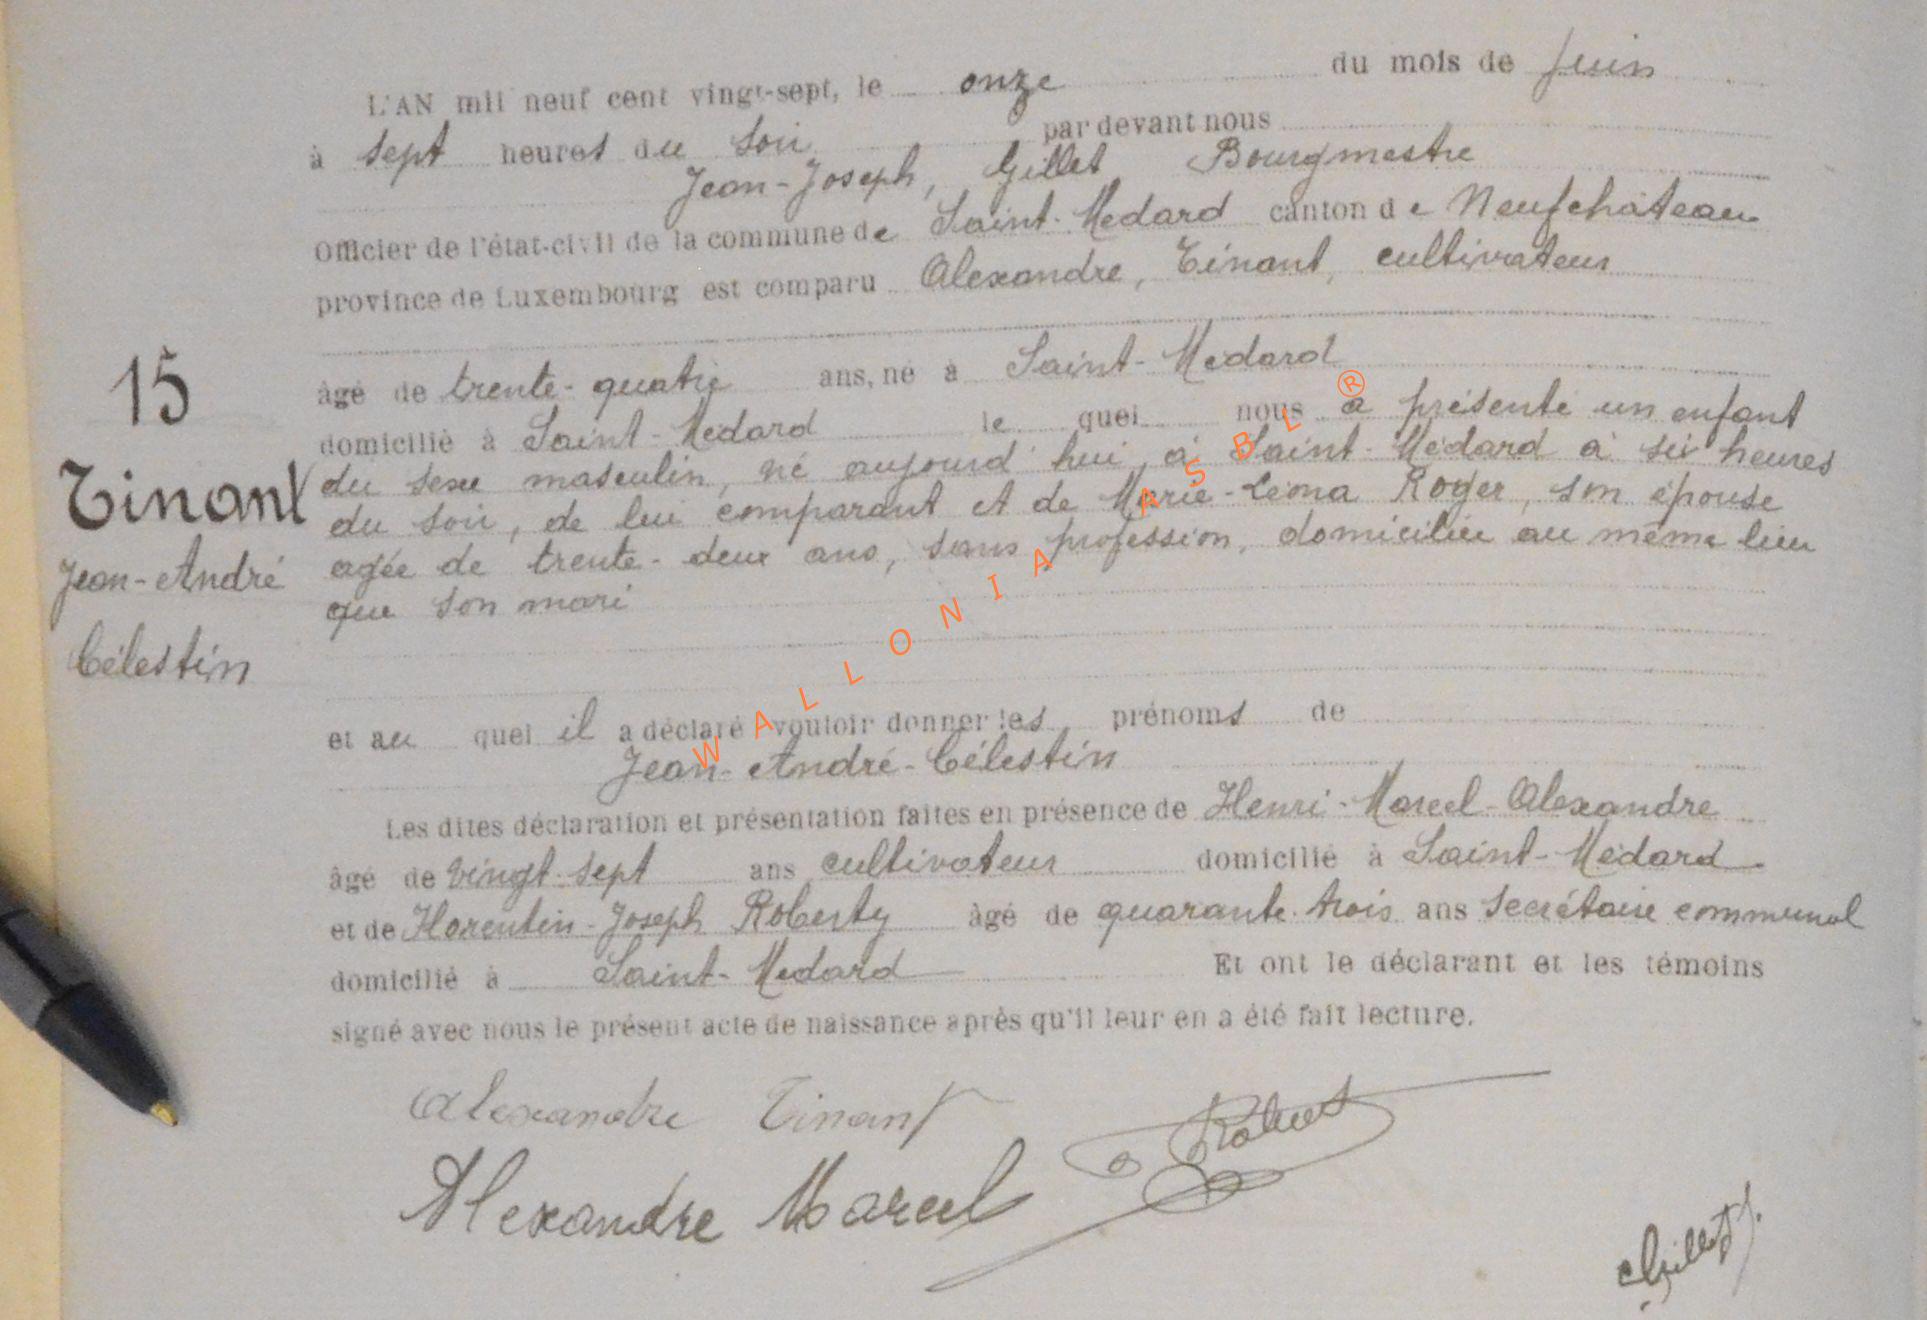 L'AN mil neuf cent vingt-sept, le onze du mois de Juin
à sept heures du soir par devant nous
Jean-Joseph, Gillet Bourgmestre
Officier de l'état-civil de la commune de Saint-Médard canton de Neufchâteau
province de Luxembourg est comparu Alexandre, Tinant, cultivateur
âgé de trente-quatre ans, né à Saint-Médard
domicilié à Saint-Médard le quel nous a présenté un enfant
du sexe masculin, né aujourd'hui, à Saint-Médard à six heures
du soir, de lui comparant et de Marie-Léona Roger, son épouse
agée de trente-deux ans, sans profession, domiciliée au même lieu
que son mari
15
Tinant
Jean-André
Célestin
et au quel il a déclaré vouloir donner les prénoms de
Jean-André-Célestin
Les dites déclaration et présentation faites en présence de Henri-Marcel-Alexandre
âgé de vingt-sept ans cultivateur domicilié à Saint-Médard
et de Florentin-Joseph Roberty âgé de quarante-trois ans secrétaire communal
domicilié à Saint-Médard Et ont le déclarant et les témoins
signé avec nous le présent acte de naissance après qu'il leur en a été fait lecture.
Alexandre Tinant
Alexandre Marcel
Gillet J.
WALLONIA ASBL ®